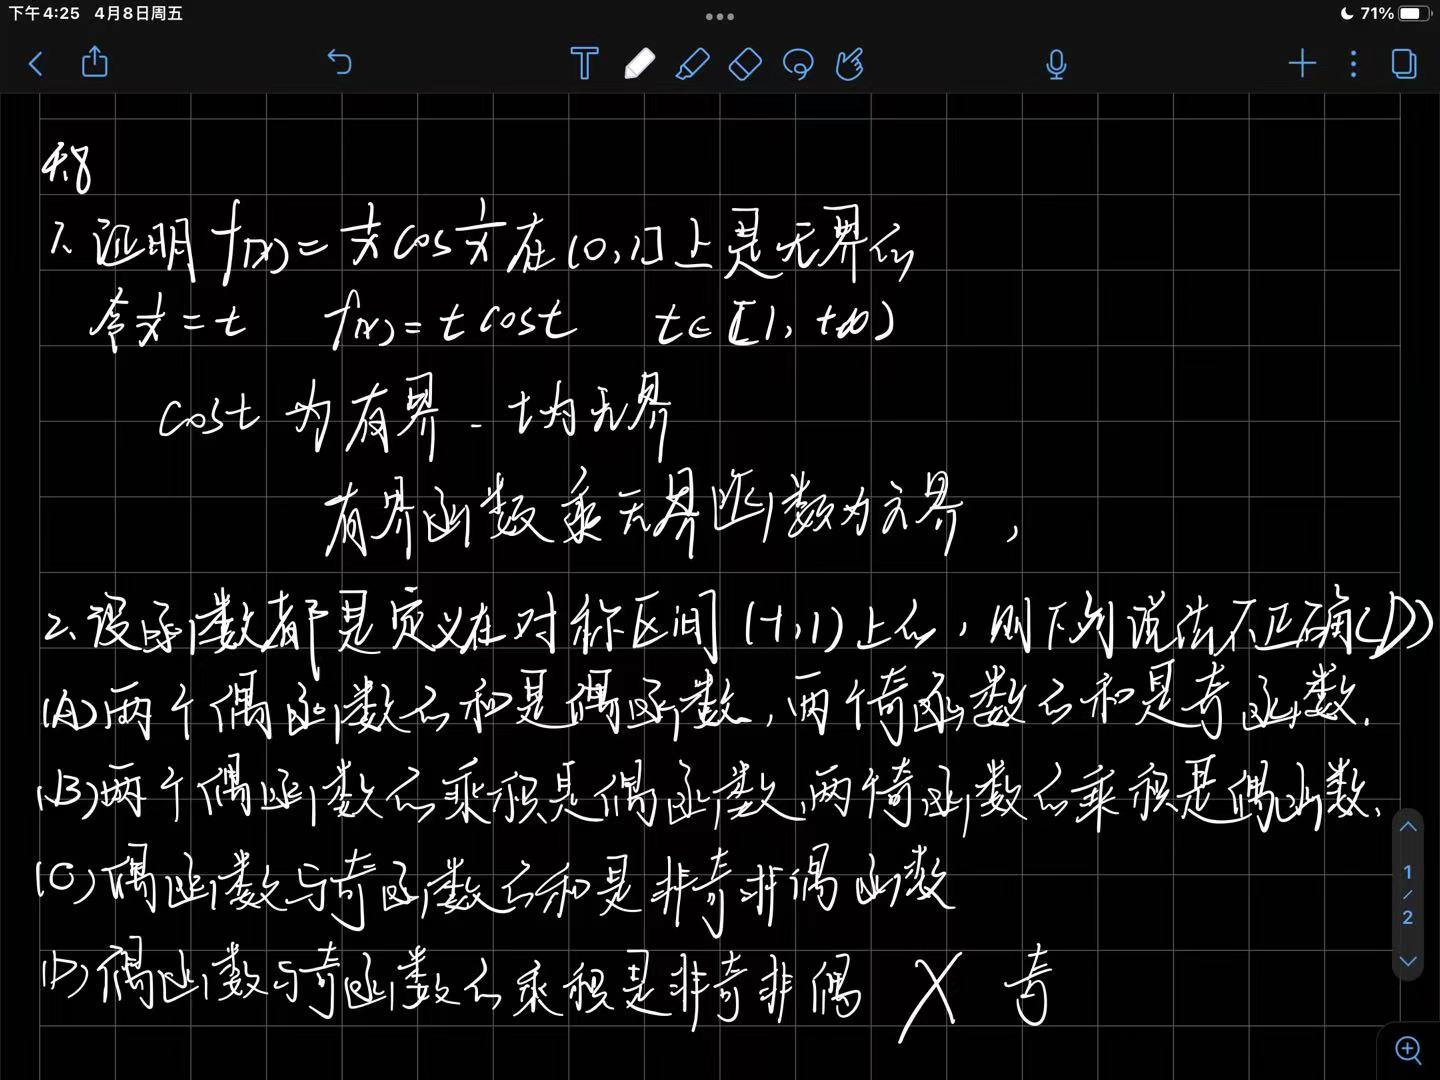 下午4:25 4月8日周五
71%
4.8
1、证明f(x)=1/x cos 1/x在(0,1]上是无界的
令1/x=t f(x)=t cost t∈[1,+∞)
cost为有界-t为无界
有界函数乘无界函数为无界,
2、设函数都是定义在对称区间(-1,1)上的,则下列说法不正确(D)
(A)两个偶函数的和是偶函数,两个奇函数的和是奇函数.
(B)两个偶函数的乘积是偶函数,两奇函数的乘积是偶函数.
(C)偶函数与奇函数的和是非奇非偶函数
(D)偶函数与奇函数的乘积是非奇非偶 X 奇
1
/
2